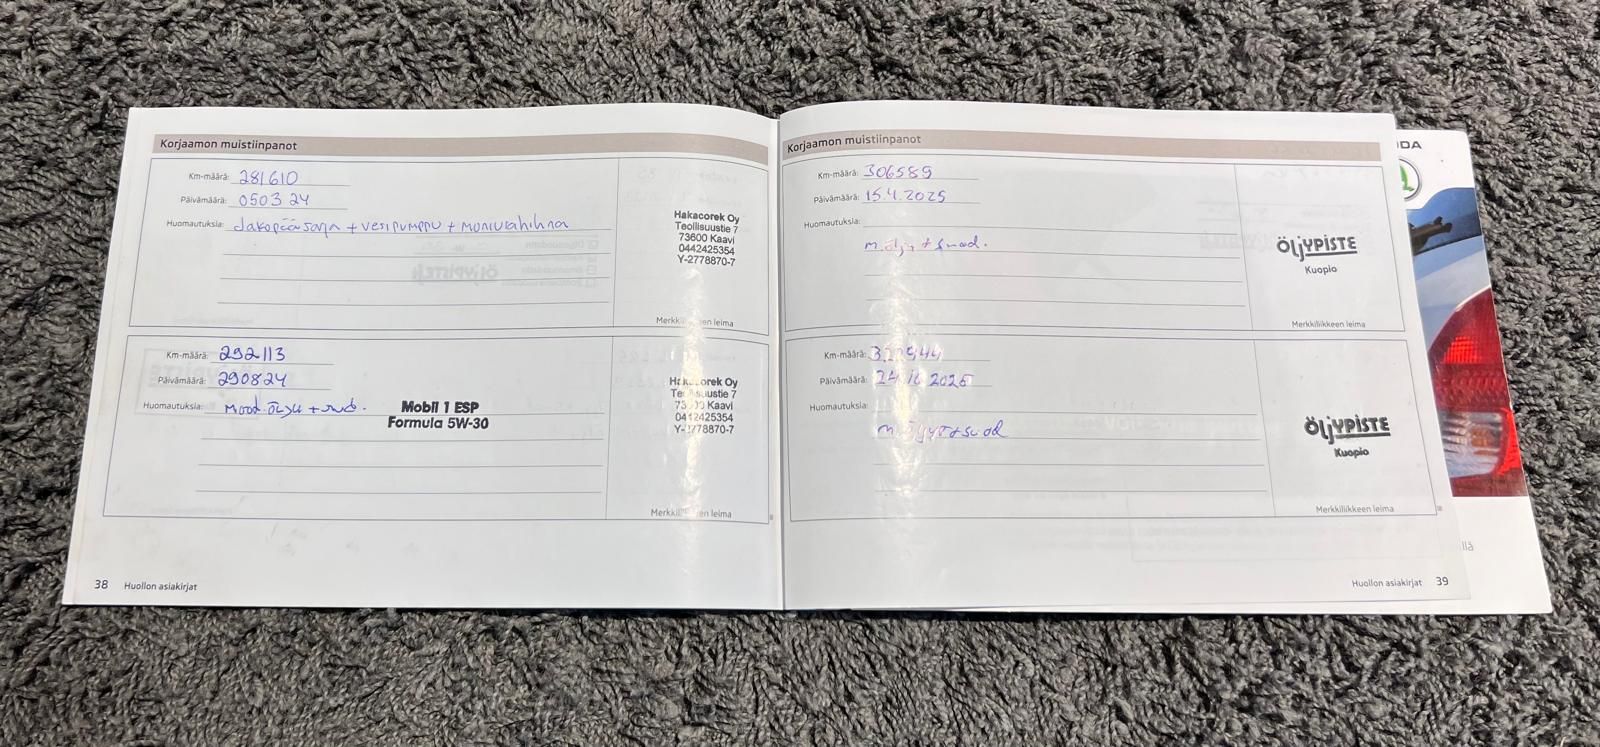 Korjaamon muistiinpanot
Km-määrä: 281610
Päivämäärä: 0503 24
Huomautuksia: Jakopääsarja + vesipumppu + moniurahihna
Hakacorek Oy
Teollisuustie 7
73600 Kaavi
0442425354
Y-2778870-7
Merkkiliikkeen leima
Km-määrä: 292113
Päivämäärä: 290824
Huomautuksia: moot.öljy + suod.
Mobil 1 ESP
Formula 5W-30
Hakacorek Oy
Teollisuustie 7
73600 Kaavi
0442425354
Y-2778870-7
Merkkiliikkeen leima
38 Huollon asiakirjat
Korjaamon muistiinpanot
Km-määrä: 306589
Päivämäärä: 15.4.2025
Huomautuksia:
m.öljy + suod.
ÖljYPISTE
Kuopio
Merkkiliikkeen leima
Km-määrä:
Päivämäärä:
Huomautuksia:
m.öljyt+suod
ÖljYPISTE
Kuopio
Merkkiliikkeen leima
Huollon asiakirjat 39